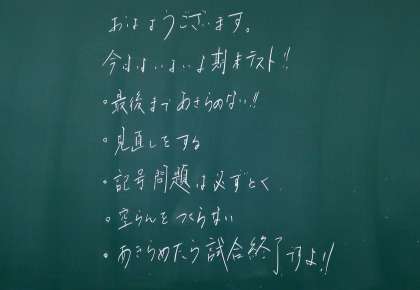 おはようございます。
今日はいよいよ期末テスト!!
・最後まであきらめない!!
・見直しをする
・記号問題は必ずとく
・空らんをつくらない
・あきらめたら試合終了ですよ!!